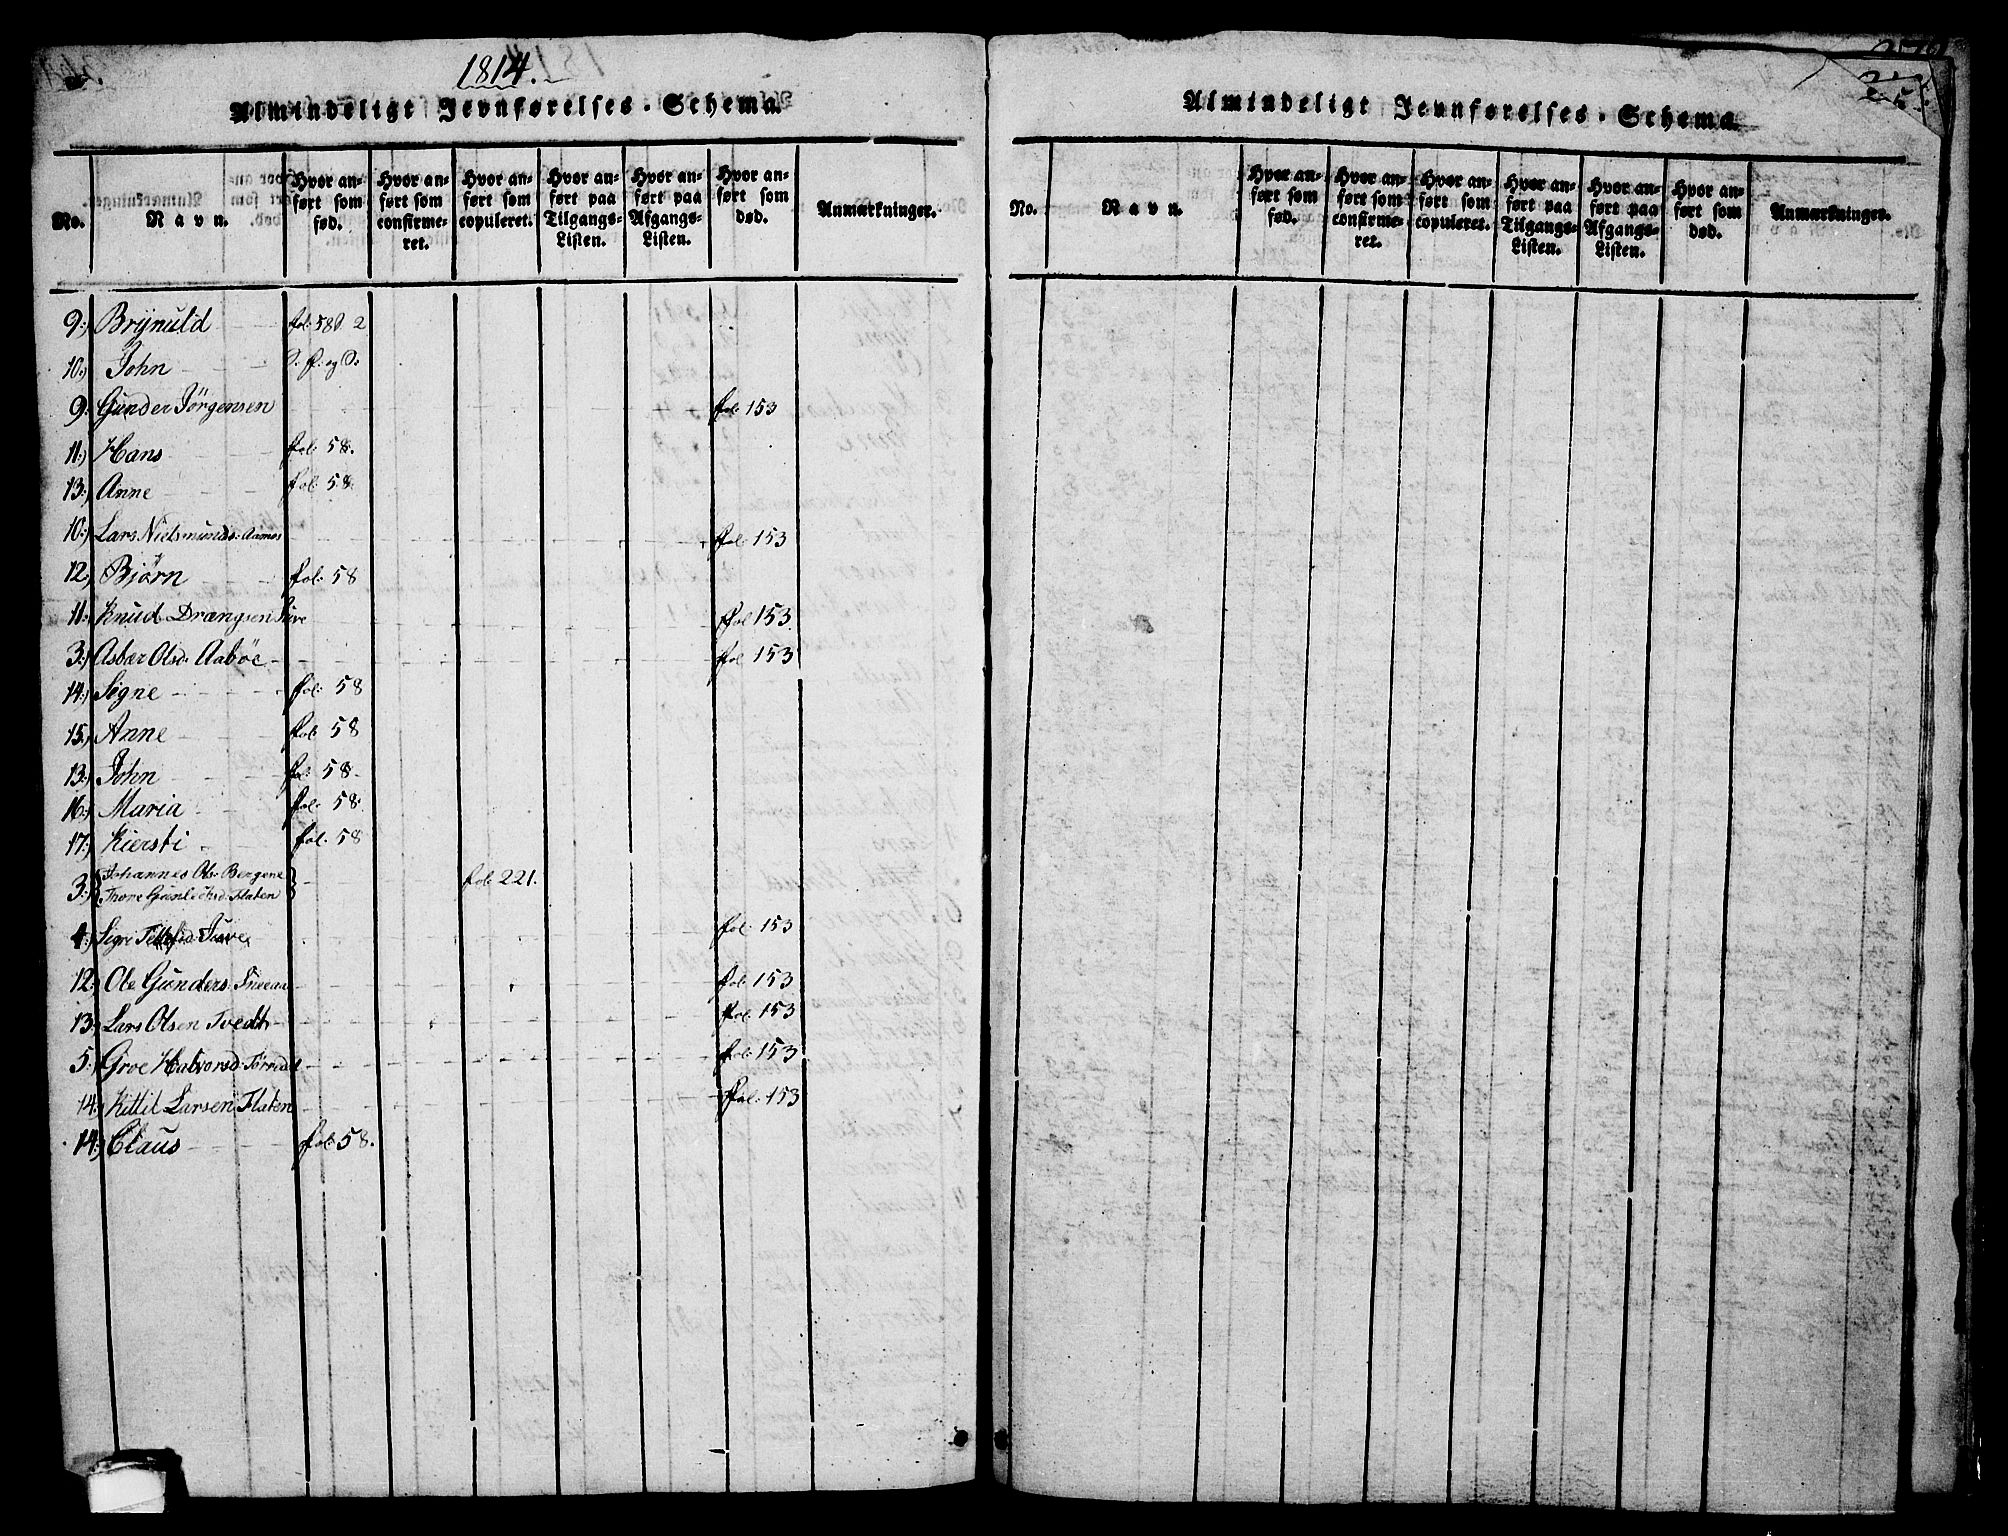 1814.
Almindeligt Jevnførelses-Schema.
No.
Navn.
Hvor anført som fød.
Hvor anført som confirmeret.
Hvor anført som copuleret.
Hvor anført paa Tilgangs-Listen.
Hvor anført paa Afgangs-Listen.
Hvor anført som død.
Anmærkninger.
9:) Brÿnuld fol: 58 2
10:) John
9: Gunder Jörgensen fol: 153
11:) Hans fol: 58.
13:) Anne fol: 58
10:) Lars Nielsmunds: Aamos fol: 153
12:) Biörn fol: 58
11:) Knud Drangsen fol 153.
3:) Asbær Olsd: Aaböe fol 153
14:) Signe fol: 58
15:) Anne fol: 58
13:) John fol: 58
16:) Maria fol: 58
17:) Kiersti fol: 58
3:) Johannes Ols: Bergene fol: 221.
Thone Gunleiksd: Flaten
4:) Sigri Juve fol: 153
12:) Ole Gunders: fol: 153
13:) Lars Olsen Tvedt fol: 153
5:) Groe Halvorsd: fol: 153
14: Kittil Larsen Flaten fol: 153
14:) Claus fol: 58.
Almindeligt Jevnførelses-Schema.
No.
Navn.
Hvor anført som fød.
Hvor anført som confirmeret.
Hvor anført som copuleret.
Hvor anført paa Tilgangs-Listen.
Hvor anført paa Afgangs-Listen.
Hvor anført som død.
Anmærkninger.